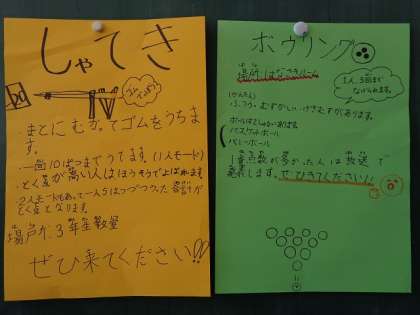 しゃてき
・まとにむかってゴムをうちます。
・一回10ぱつまでうてます。(1人モード)
・とく点が高い人はほうそうでよばれます
・2人モードもあって一人5はつづつうった合計がとく点となります。
場戸は、3年生教室
ぜひ来てください!!
ボウリング
場所はなさきルーム
1人、3回までなげられます。
(かんたん)
ふつう・むずかしい・げきむずがあります。
ボールは2しゅるいあります。
バスケットボール
バレーボール
1番点数が多かった人は放送で
発表します。ぜひきてください!!